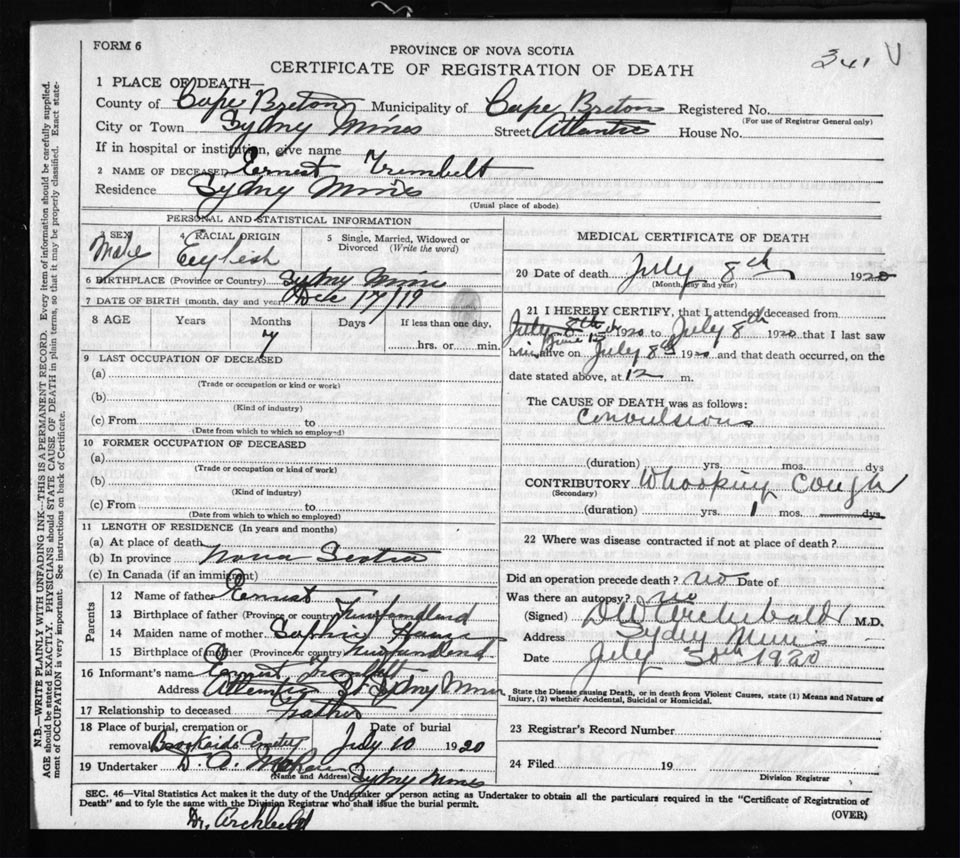 FORM 6
PROVINCE OF NOVA SCOTIA
CERTIFICATE OF REGISTRATION OF DEATH
341 V
1 PLACE OF DEATH—
County of Cape Breton Municipality of Cape Breton Registered No.
(For use of Registrar General only)
City or Town Sydney Mines Street Atlantic House No.
If in hospital or institution, give name
2 NAME OF DECEASED Ernest
Residence Sydney Mines
(Usual place of abode)
PERSONAL AND STATISTICAL INFORMATION
3 SEX 4 RACIAL ORIGIN 5 Single, Married, Widowed or Divorced (Write the word)
Male English
6 BIRTHPLACE (Province or Country) Sydney Mines
7 DATE OF BIRTH (month, day and year) Dec 17/19
8 AGE Years Months Days If less than one day,
7 hrs. or min.
9 LAST OCCUPATION OF DECEASED
(a)
(Trade or occupation or kind or work)
(b)
(Kind of industry)
(c) From to
(Date from which to which so employed)
10 FORMER OCCUPATION OF DECEASED
(a)
(Trade or occupation or kind of work)
(b)
(Kind of industry)
(c) From to
(Date from which to which so employed)
11 LENGTH OF RESIDENCE (In years and months)
(a) At place of death
(b) In province Nova Scotia
(c) In Canada (if an immigrant)
Parents
12 Name of father Ernest
13 Birthplace of father (Province or country) Newfoundland
14 Maiden name of mother Sophie
15 Birthplace of mother (Province or country) Newfoundland
16 Informant's name Ernest
Address Atlantic St Sydney Mines
17 Relationship to deceased Father
18 Place of burial, cremation or Date of burial
removal Cemetery July 10 1920
19 Undertaker D. A.
(Name and Address) Sydney Mines
MEDICAL CERTIFICATE OF DEATH
20 Date of death July 8th 1920
(Month, day and year)
21 I HEREBY CERTIFY, that I attended deceased from
July 8th June 1920 to July 8th 1920 that I last saw
him alive on July 8th 1920 and that death occurred, on the
date stated above, at 12 m.
The CAUSE OF DEATH was as follows:
Convulsions
(duration) yrs. mos. dys
CONTRIBUTORY Whooping Cough
(Secondary)
(duration) yrs. 1 mos. dys.
22 Where was disease contracted if not at place of death?
Did an operation precede death? no Date of
Was there an autopsy? no
(Signed) Archibald M.D.
Address Sydney Mines
Date July 30th 1920
State the Disease causing Death, or in death from Violent Causes, state (1) Means and Nature of
Injury, (2) whether Accidental, Suicidal or Homicidal.
23 Registrar's Record Number
24 Filed 19
Division Registrar
SEC. 46—Vital Statistics Act makes it the duty of the Undertaker or person acting as Undertaker to obtain all the particulars required in the "Certificate of Registration of
Death" and to fyle the same with the Division Registrar who shall issue the burial permit.
(OVER)
Dr. Archibald
N.B.—WRITE PLAINLY WITH UNFADING INK—THIS IS A PERMANENT RECORD. Every item of information should be carefully supplied.
AGE should be stated EXACTLY. PHYSICIANS should STATE CAUSE OF DEATH in plain terms, so that it may be properly classified. Exact state-
ment of OCCUPATION is very important. See instructions on back of Certificate.